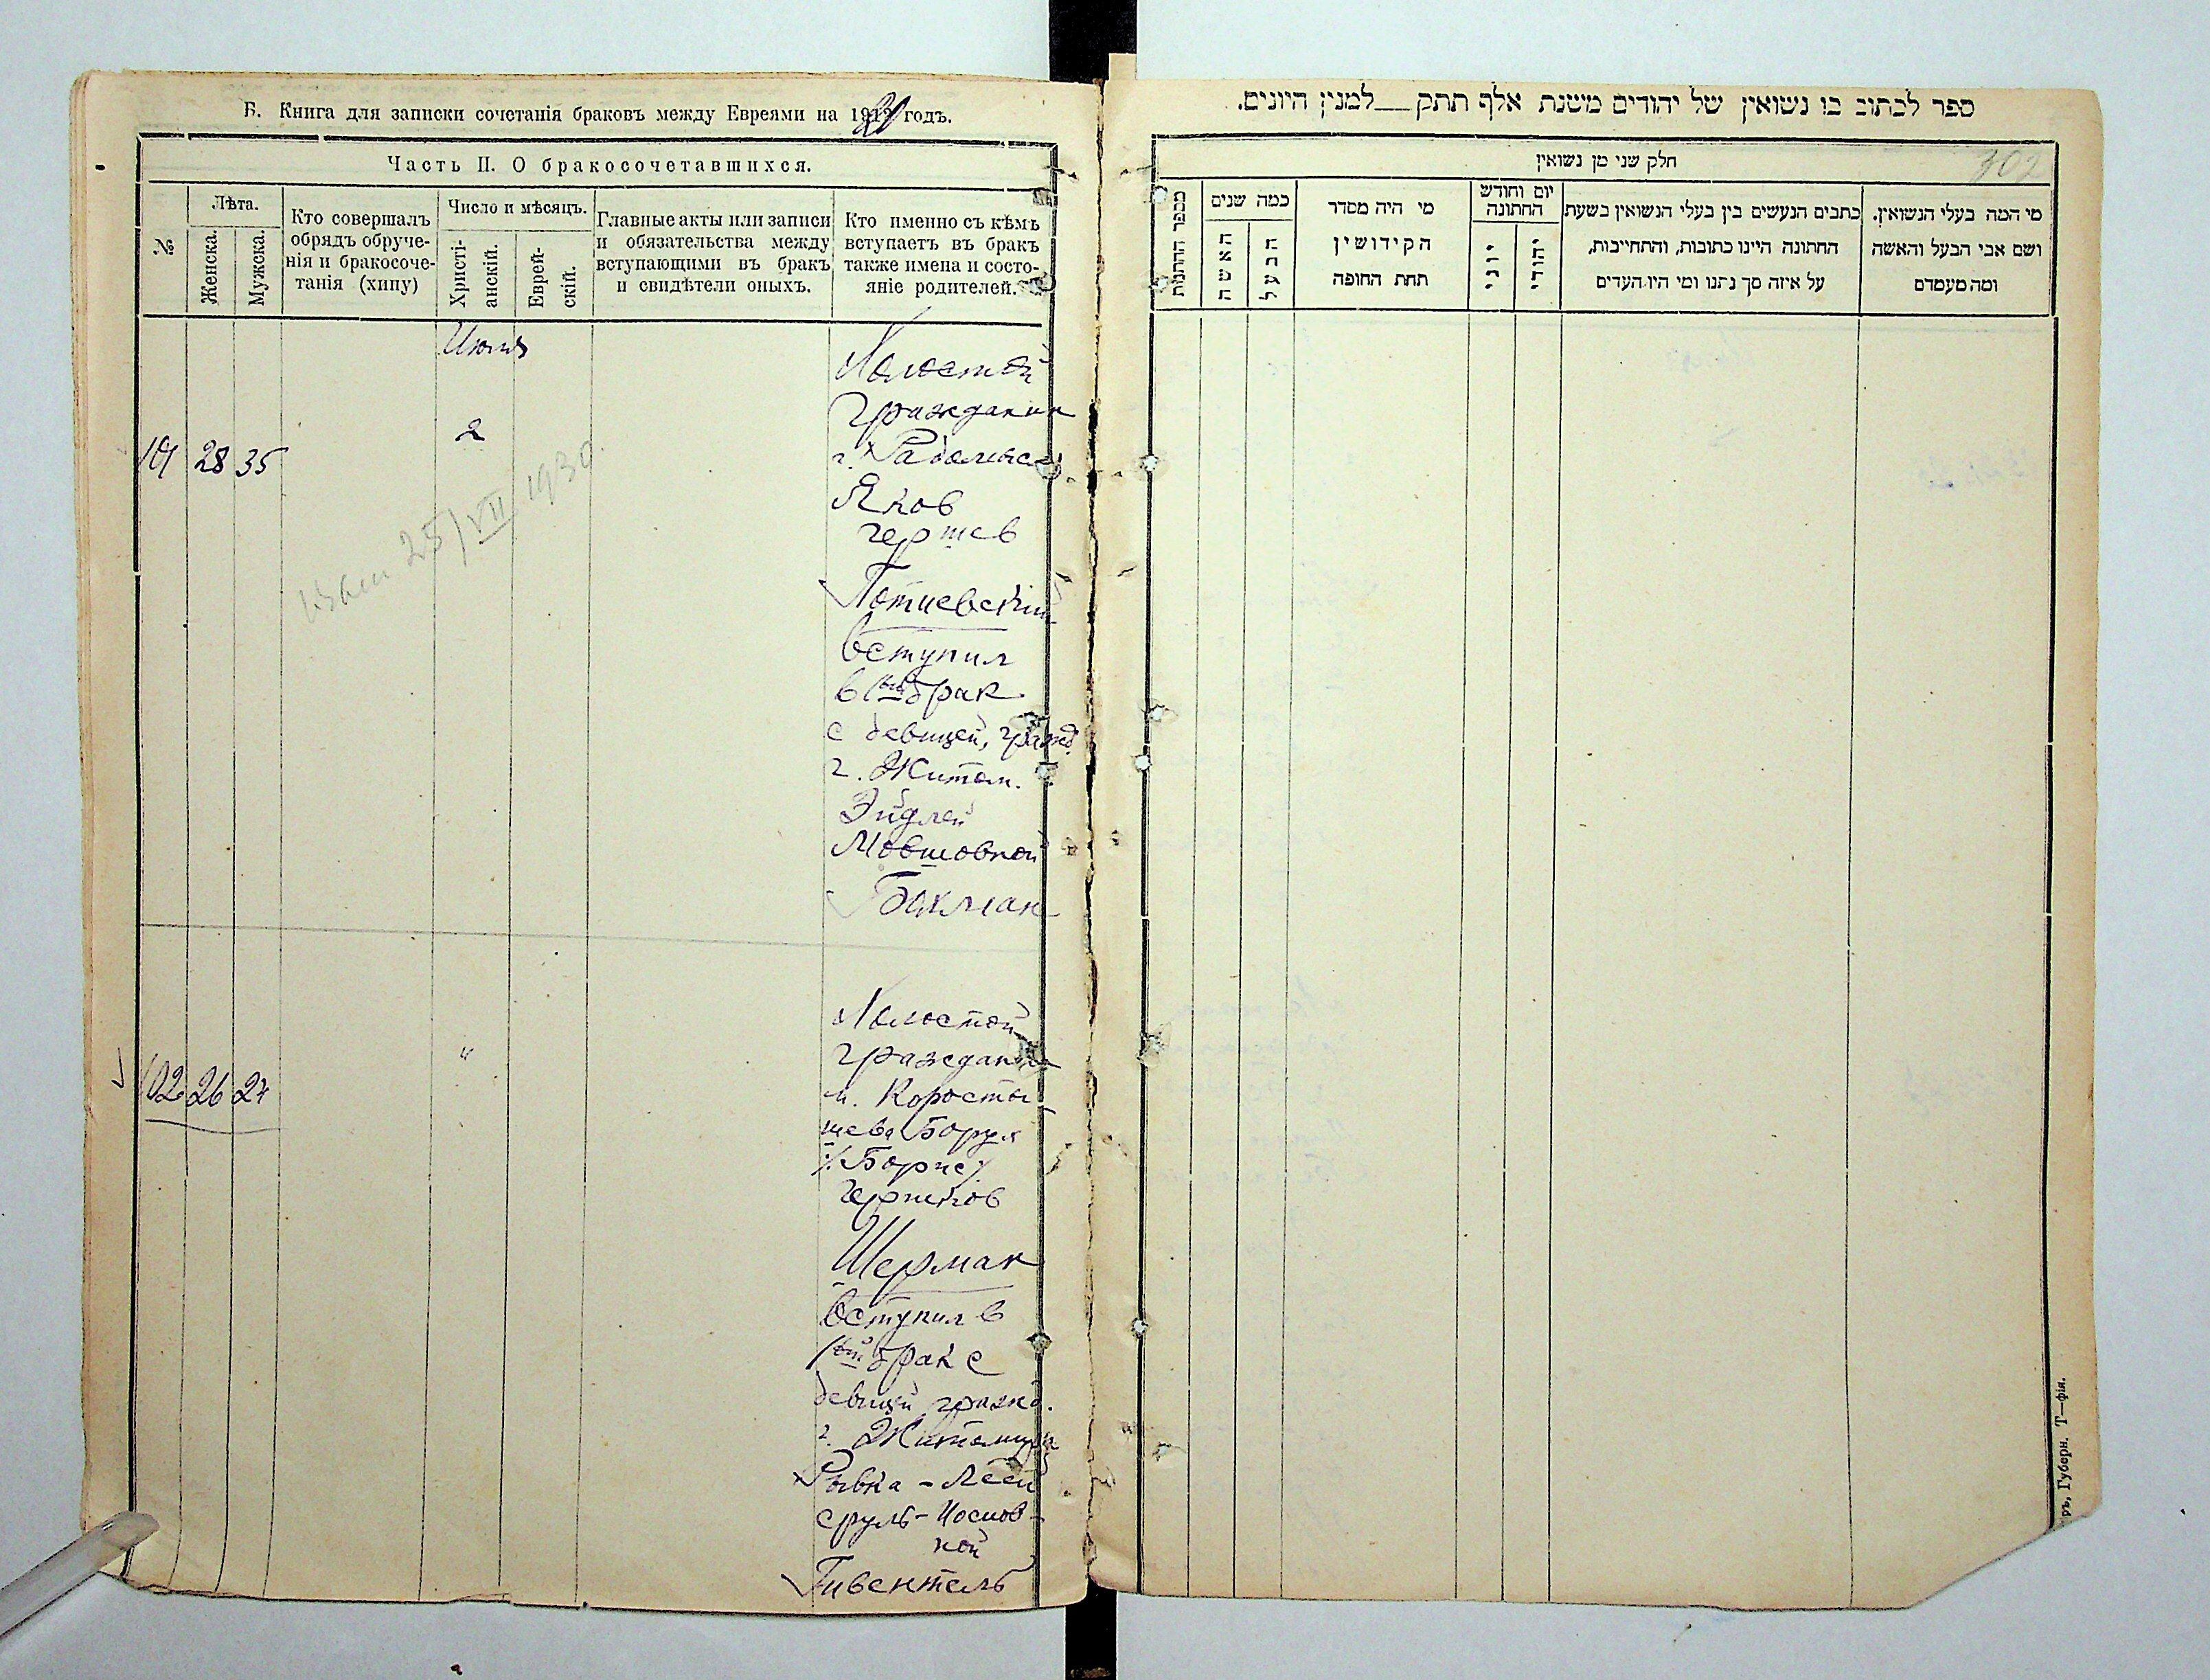 Б. Книга для записки сочетанія браковъ между Евреями на 1920 годъ.
Часть II. О бракосочетавшихся.
№
Лѣта.
Женска.
Мужска.
Кто совершалъ
обрядъ обруче-
нія и бракосоче-
танія (хипу)
Число и мѣсяцъ.
Христі-
анскій.
Еврей-
скій.
Главные акты или записи
и обязательства между
вступающими въ бракъ
и свидѣтели оныхъ.
Кто именно съ кѣмъ
вступаетъ въ бракъ
также имена и состо-
яніе родителей.
101 28 35
2
25/VII 1930
Холостой
гражданин
г. Радомысл
Яков
Гершев
Потиевский
вступил
в 1ый брак
с девицей, гражд.
г. Житом.
Эйдлей
Мовшовной
Бакман
102 26 24
"
Холостой
гражданин
м. Коросты-
шева Борух
/:Борис:/
Гершков
Шерман
вступил в
1ый брак с
девицей гражд.
г. Житомира
Рывка-Леей
Сруль-Иосиов-
ной
Гивентель
ספר לכתוב בו נשואין של יהודים משנת אלף תתק__למנין היונים.
302
חלק שני מן נשואין
מספר החתנות
כמה שנים
האשה
הבעל
מי היה מסדר
הקידושין
תחת החופה
יום וחודש
החתונה
יוני
יהודי
כתבים הנעשים בין בעלי הנשואין בשעת
החתונה היינו כתובות, והתחייבות,
על איזה סך נתנו ומי היו העדים
מי המה בעלי הנשואין.
ושם אבי הבעל והאשה
ומה מעמדם
ръ, Губерн. Т—фія.